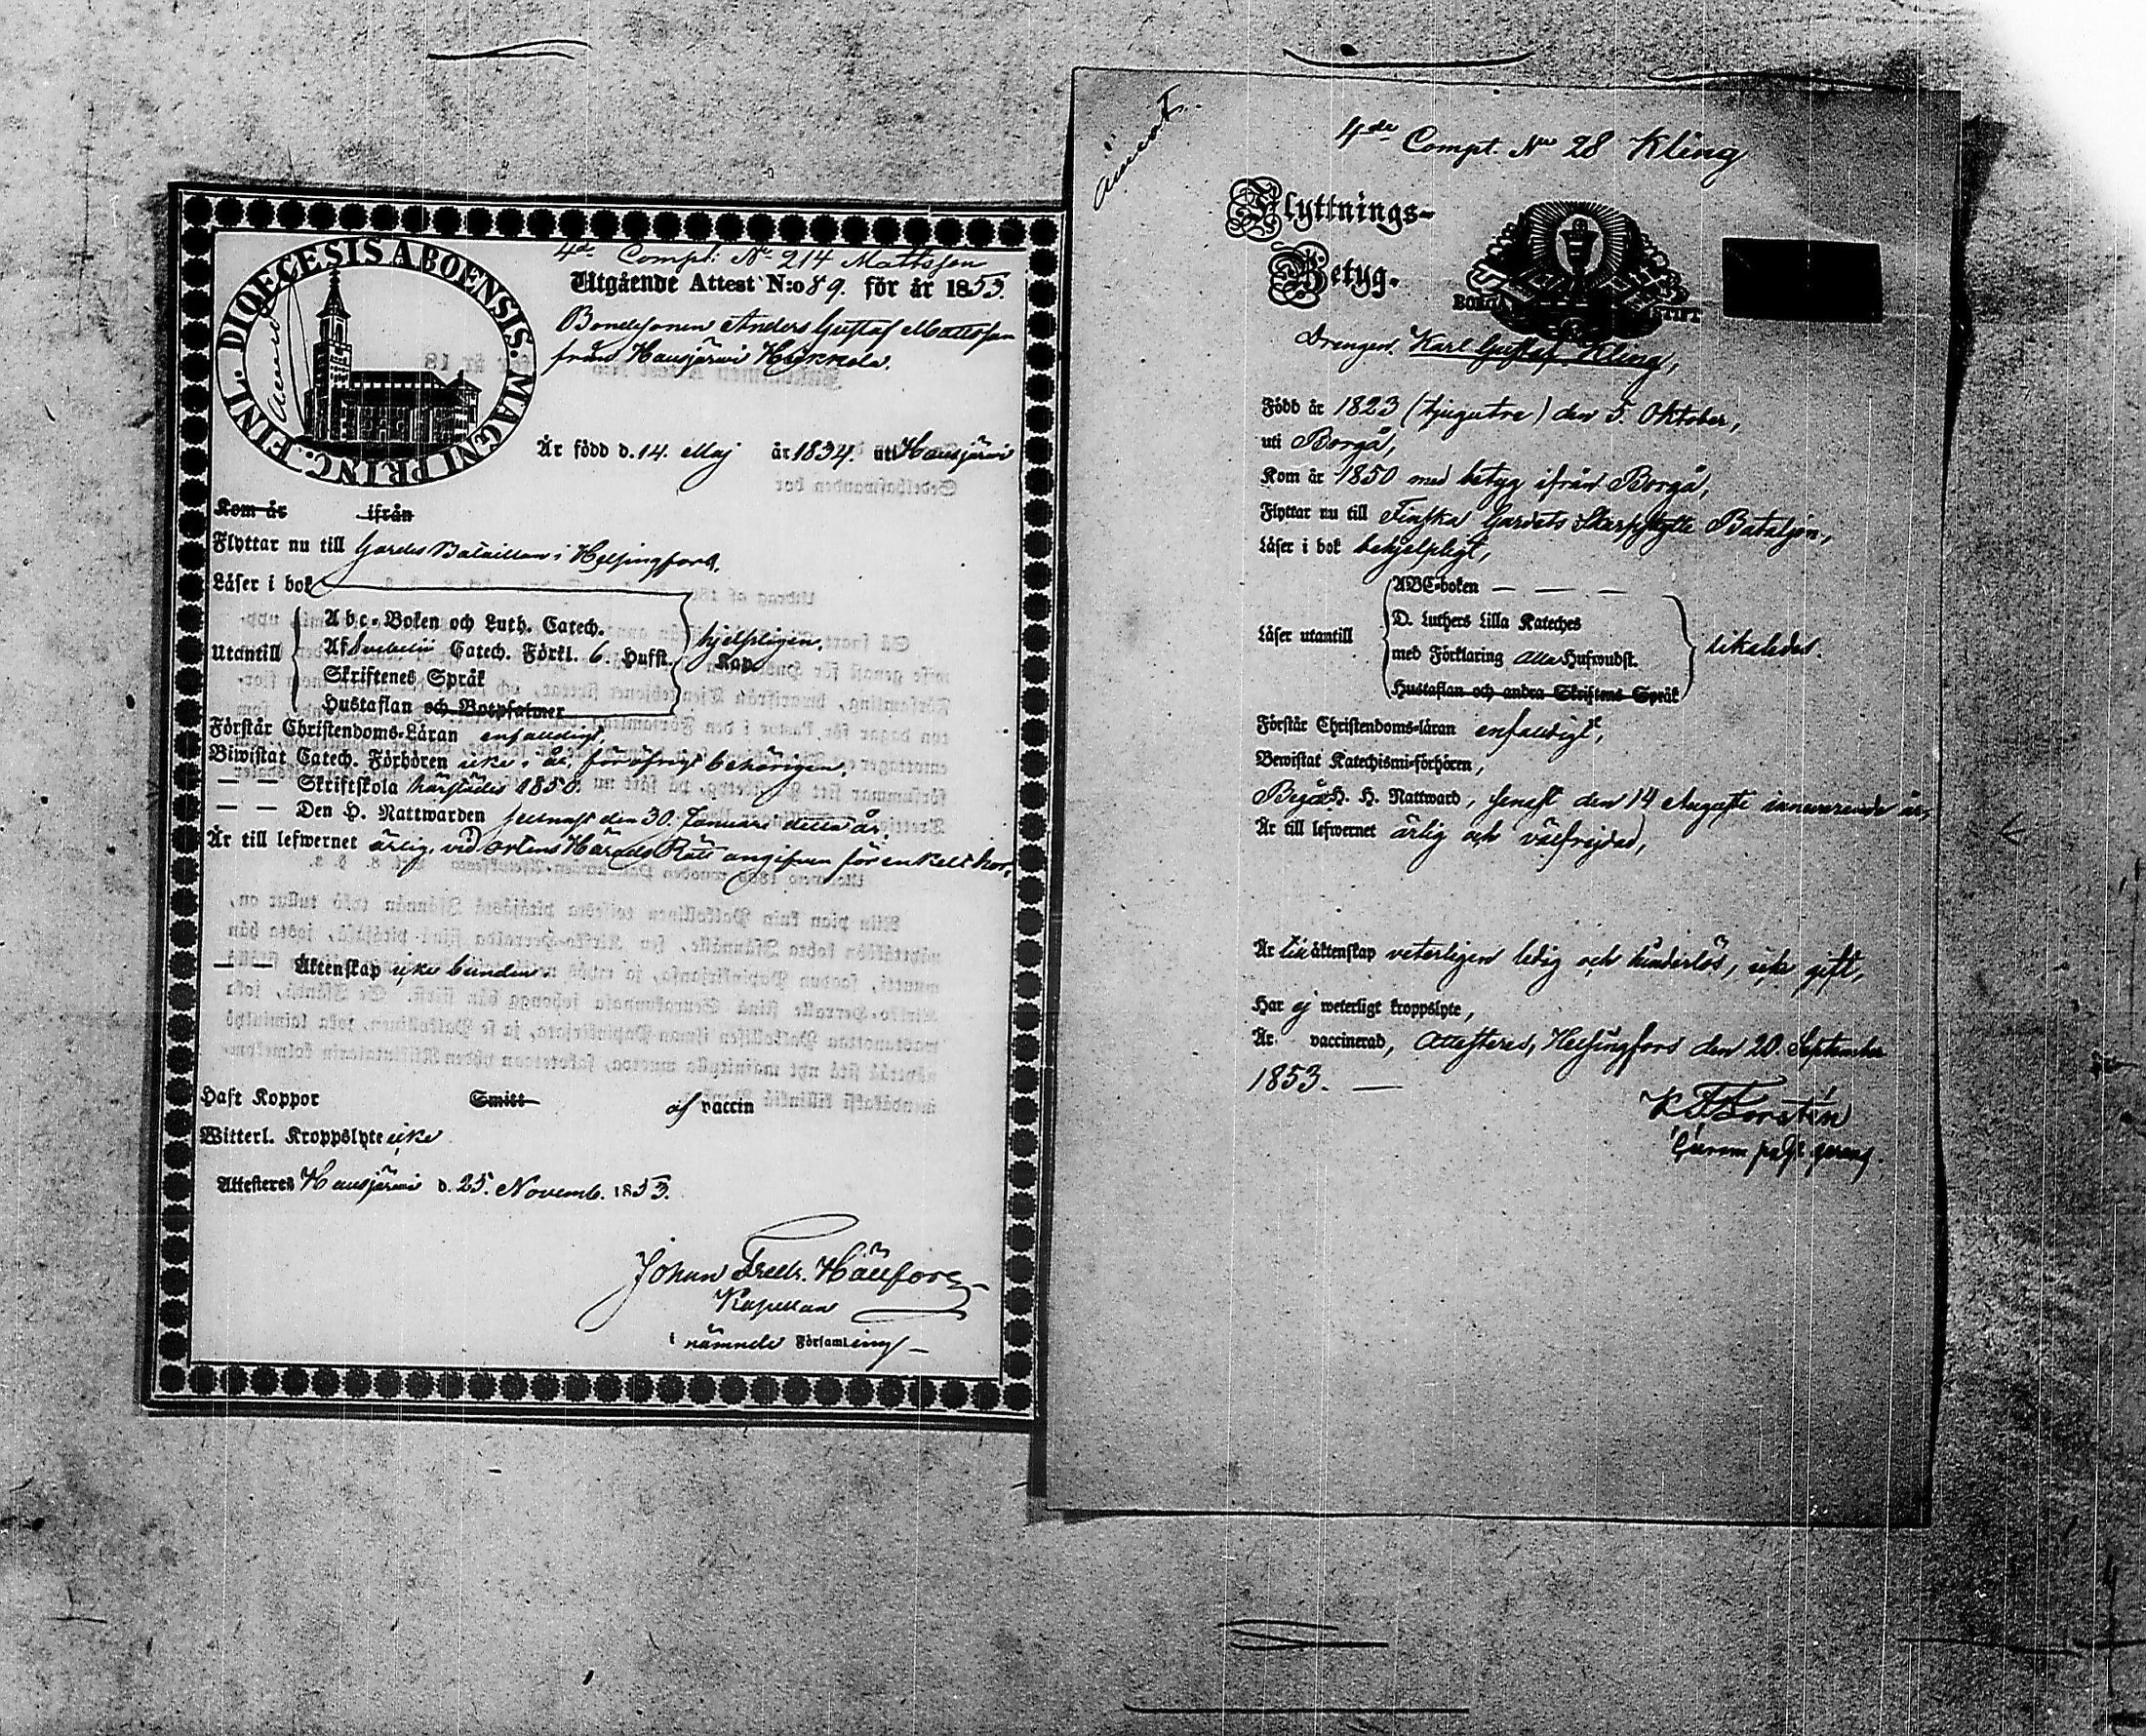 4de Compt. No 214 Mattsson
DIOECESIS ABOENSIS. MAGNI PRINC. FINL.
Utgående Attest N:o 89. för år 1853.
Bondesonen Anders Gustaf Mattsson
från Hausjärvi Hikkola.
Är född d. 14. Maj år 1834. uti Hausjärvi
Kom år ifrån
Flyttar nu till Gardes Bataillon i Helsingfors.
Läser i bok
Utantill
Abc-Boken och Luth. Catech.
Af Svebelii Catech. Förkl. 6. Hufst.
Skriftenes Språk
Hustaflan och Botpsalmer
hjelpligen.
Kap
Förstår Christendoms-Läran enfaldigt,
Biwistat Catech. Förhören icke i år, föröfrigt behörigen.
— — Skriftskola härstädes 1850.
— — Den H. Nattwarden sednast den 30. Januari detta år.
Är till lefwernet ärlig, vid ortens Härads Rätt angifven för enkelt hor.
— — Äktenskap icke bunden.
Haft Koppor Smitt af vaccin
Witterl. Kroppslyte icke
Attesteres Hausjärvi d. 25. Novemb. 1853.
Johan Fredr.
Kapellan
i nämnde Församling
4de Compt. No 28 Kling
Flyttnings-
Betyg.
BORGÅ STIFT
Drengen Karl Gustaf Kling,
Född år 1823 (tjugutre) den 5. Oktober,
uti Borgå,
Kom år 1850 med betyg ifrån Borgå,
Flyttar nu till Finska Gardets Skarpskytte Bataljon,
Läser i bok behjelpligt,
Läser utantill
ABC-boken — — —
D. Luthers Lilla Kateches
med Förklaring alla Hufwudst.
Hustaflan och andra Skriftens Språk
likaledes.
Förstår Christendoms-läran enfaldigt,
Bewistat Katechismi-förhören,
Begått H. H. Nattward, senast den 14 Augusti innevarande år,
Är till lefwernet ärlig och välfrejdad,
Är till äktenskap veterligen ledig och hinderlös, icke gift,
Har ej weterligt kroppslyte,
Är vaccinerad, Attesteras, Helsingfors den 20. September
1853. —
K F Forstén